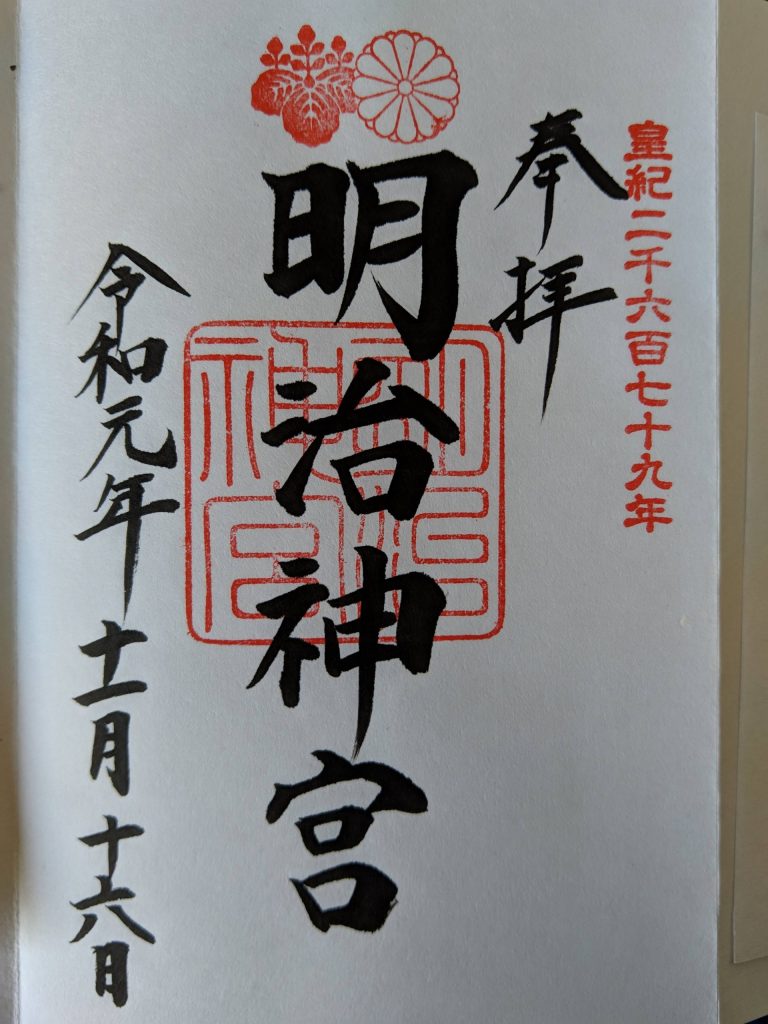 皇紀二千六百七十九年
奉拝
明治神宮
明治
神宮
令和元年十一月十六日